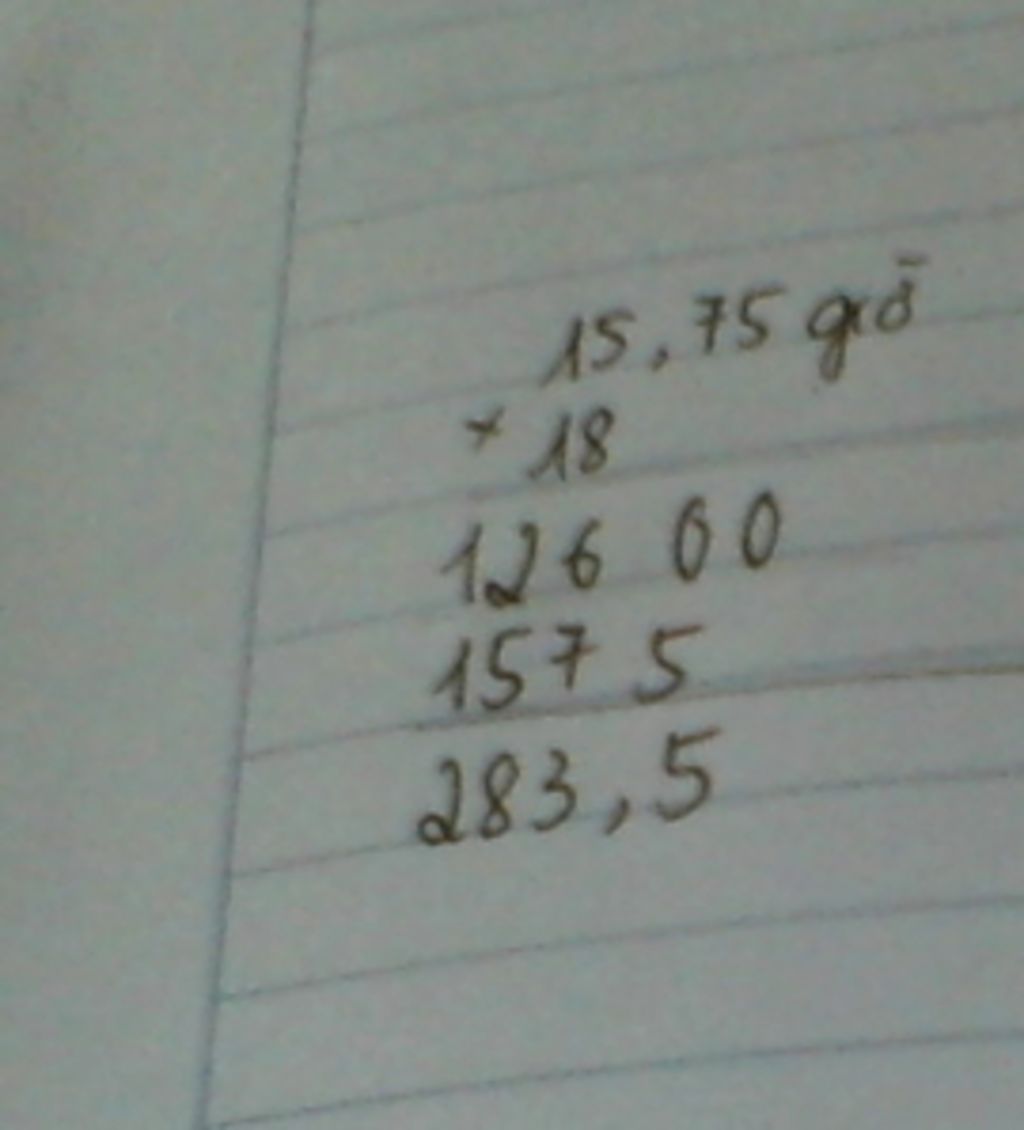 15,75 giờ
× 18
126 00
157 5
283,5